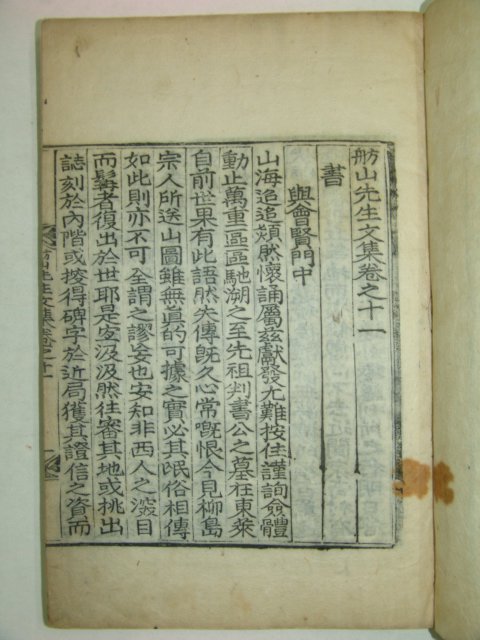 舫山先生文集卷之十一
書
與會賢門中
山海迢迢頹然懷誦屬玆獻發尤難按住謹詢僉體
動止萬重區區馳溯之至先祖判書公之墓在東萊
自前世果有此語然失傳旣久心常嘅恨今見柳島
宗人所送山圖雖無眞的可據之實必其氓俗相傳
如此則亦不可全謂之謬妄也安知非西人之潑目
而髯者復出於世耶是宜汲汲然往審其地或挑出
誌刻於內階或搒得碑字於近局獲其證信之資而
舫山先生文集卷之十一